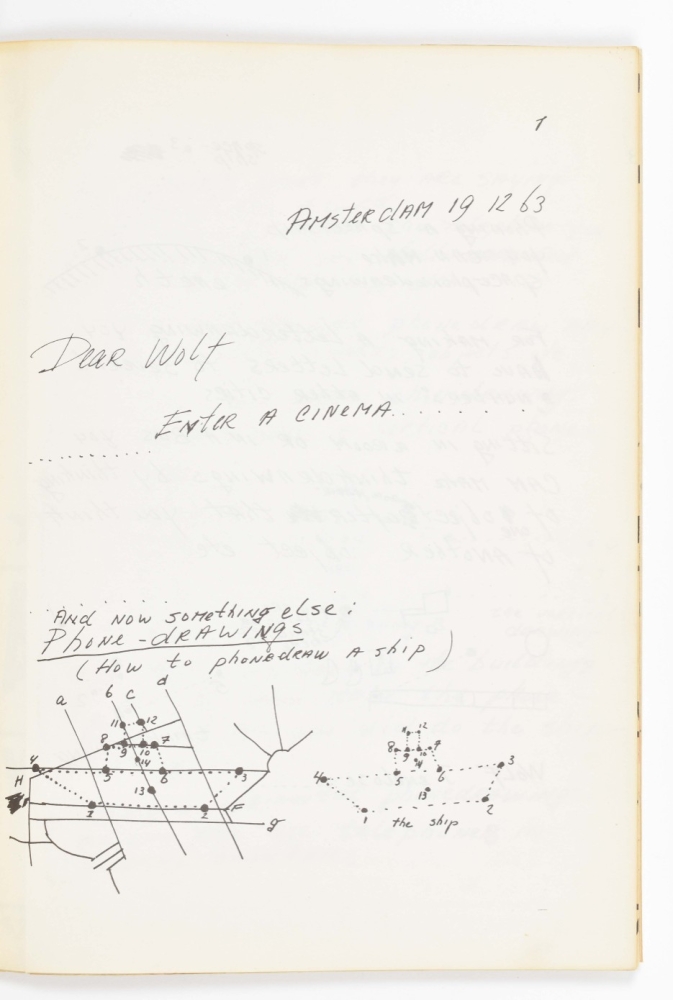 1
Amsterdam 19 12 63
Dear Wolf
Enter a cinema.........
..............
And now something else:
Phone-drawings
(How to phonedraw a ship)
a b c d
11 12
8 9 10 7
14
4 5 6 3
H
13
1 2 F
g
11 12
8 9 10 7
14
4 5 6 3
13
1 2
the ship